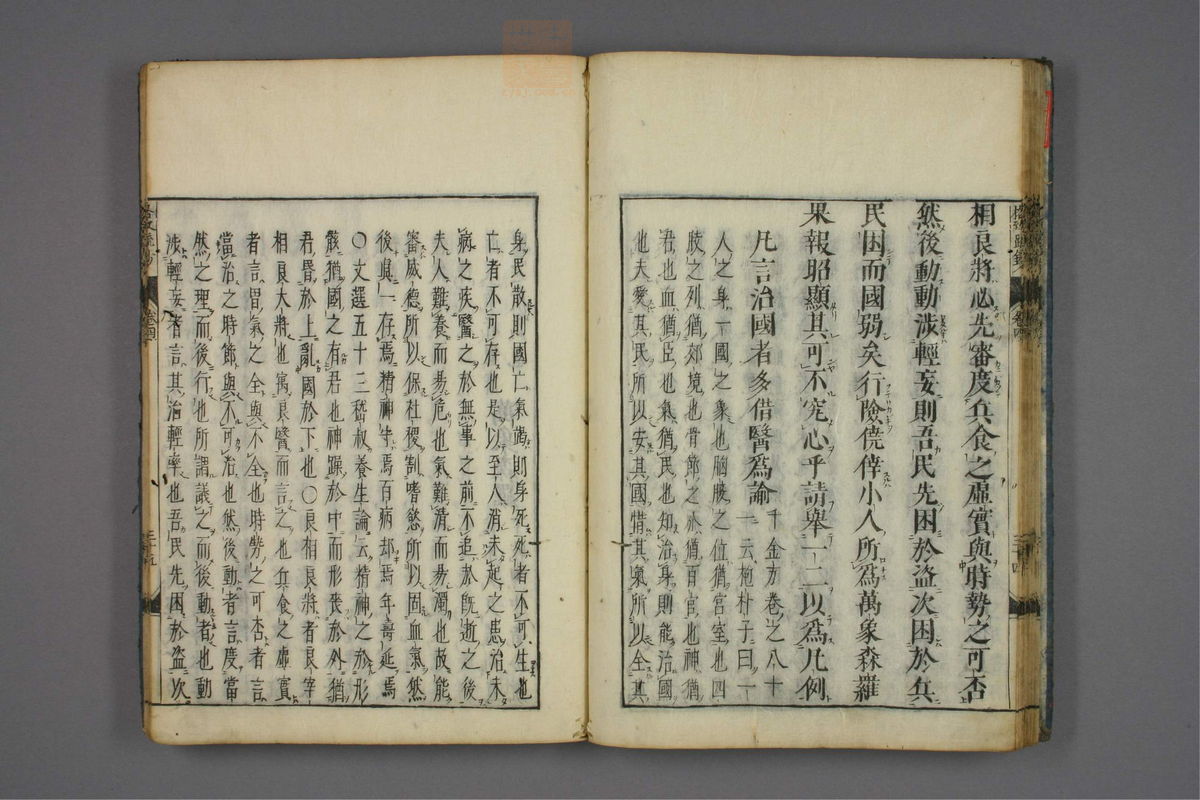 相良將必先審度兵食之虛實與時勢之可否
然後動動涉輕妄則吾民先困於盜次困於兵
民困而國弱矣行險僥倖小人所爲萬象森羅
果報昭顯其可不究心乎請舉一二以爲凡例
凡言治國者多借醫爲諭千金方卷之八十
一云抱朴子曰一
人之身一國之象也胸腹之位猶宮室也四
肢之列猶郊境也骨節之分猶百官也神猶
君也血猶臣也氣猶民也知治身則能治國
也夫愛其民所以安其國惜其氣所以全其
身民散則國亡氣竭則身死死者不可生也
亡者不可存也是以至人消未起之患治未
病之疾醫之於無事之前不追於既逝之後
夫人難養而易危也氣難清而易濁也故能
審威德所以保社稷割嗜慾所以固血氣然
後眞一存焉精神守焉百病却焉年壽延焉
○文選五十三嵇叔養生論云精神之於形
骸猶國之有君也神躁於中而形喪於外猶
君昬於上亂國於下也○良相良將者良宰
相良大將也寓良醫而言之也兵食之虛實
者言胃氣之全與不全也時勢之可否者言
當治之時節與不可治也然後動者言度當
然之理而後行也所謂議之而後動者也動
涉輕妄者言其治輕率也吾民先困於盜次